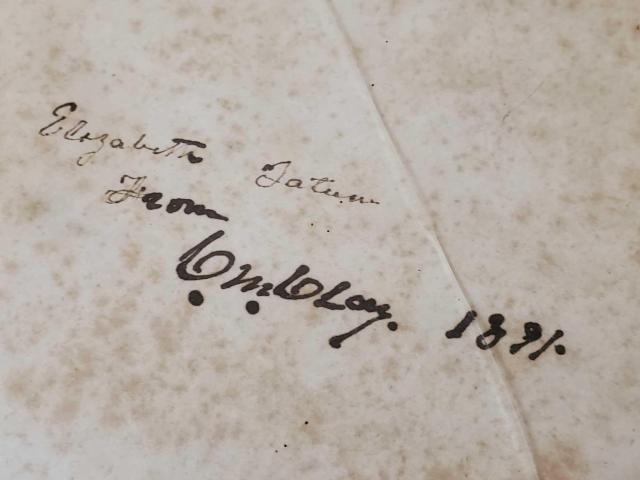 Elizabeth Tatum
From
C. M. Clay. 1891.